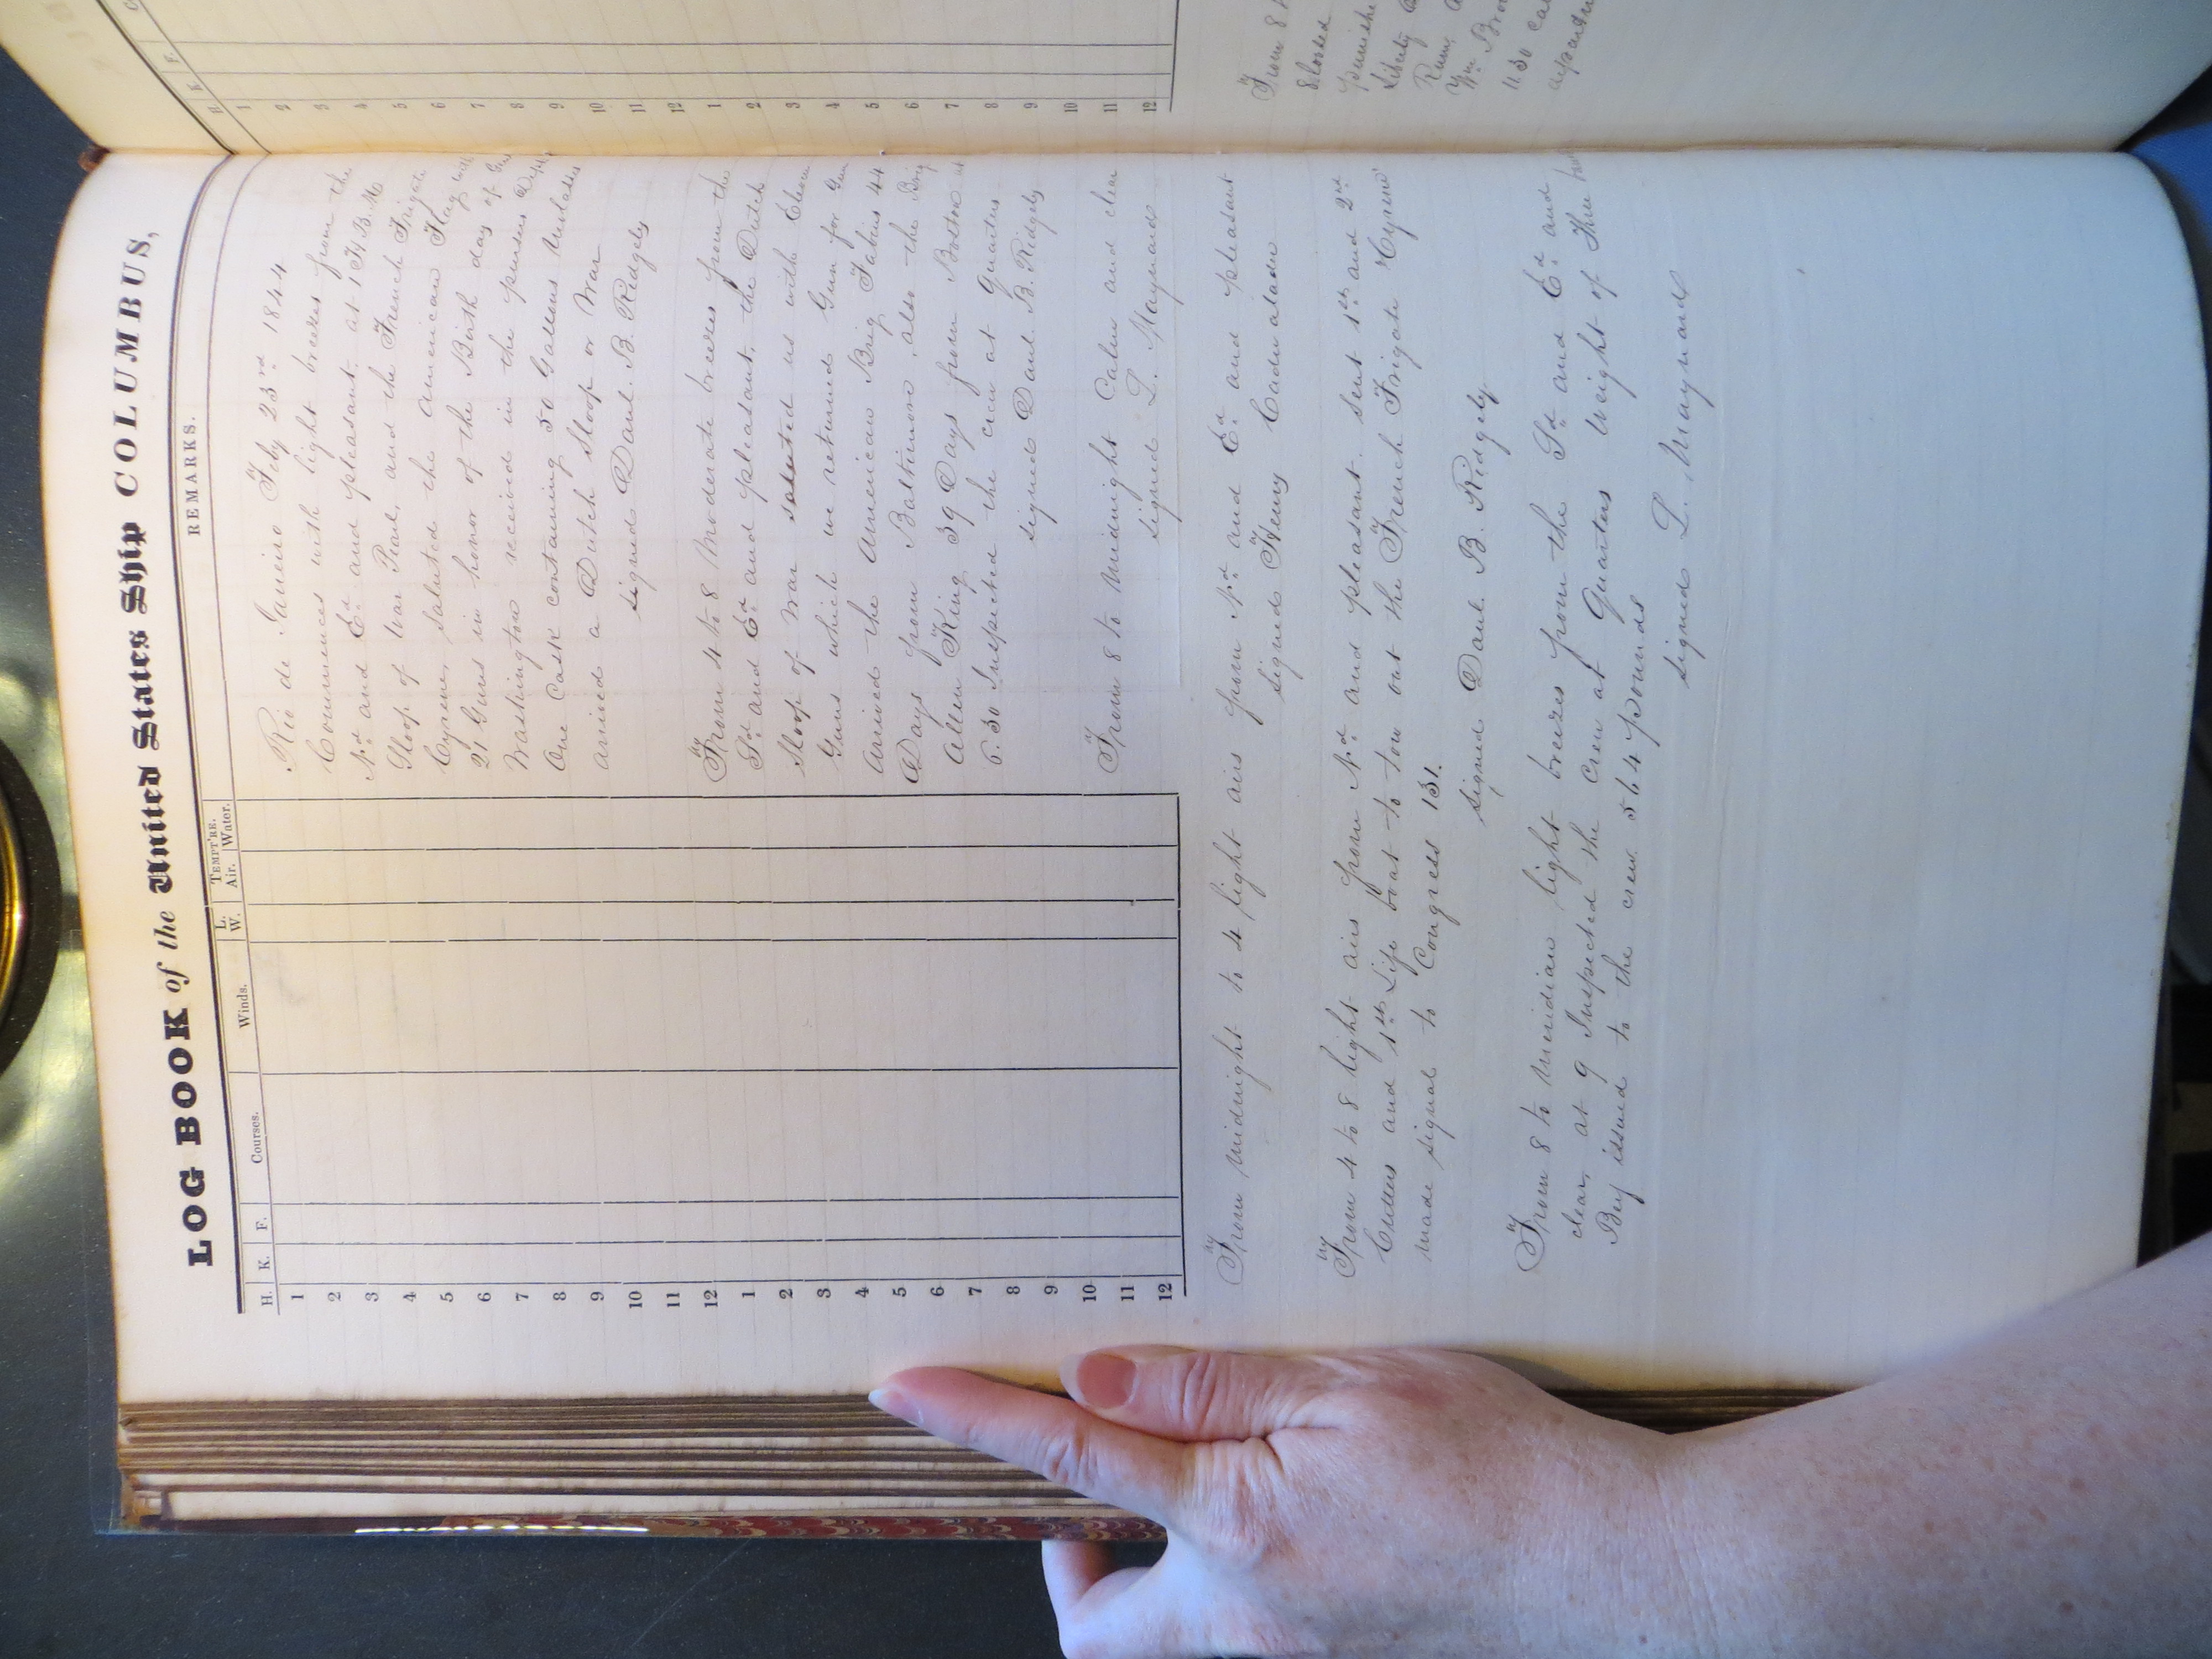 LOG BOOK of the United States Ship COLUMBUS,
REMARKS.
H. K. F. Courses. Winds. L. W. TEMPT'RE. Air. Water.
1
2
3
4
5
6
7
8
9
10
11
12
1
2
3
4
5
6
7
8
9
10
11
12
Rio de Janeiro Feby 23rd 1844
Commences with light breezes from the
Nd and Ed and pleasant. at 1 H B. M
Sloop of War Pearl, and the French Frigate
Cyane, saluted the american Flag with
21 Guns in honor of the Birth day of Gen
Washington received in the pursers Dept
One Cask containing 50 Gallons Molasses
arrived a Dutch Sloop or War
signed Danl. B. Ridgely
From 4 to 8 Moderate breezes from the
Sd and Ed and pleasant. the Dutch
Sloop of War saluted us with Eleven
Guns which we returned Gun for Gun
Arrived the American Brig Fabius 44
Days from Baltimore, also the Brig
Allen King 39 Days from Boston at
6.30 Inspected the crew at quarters
signed Danl. B. Ridgely
From 8 to Midnight Calm and clear
signed L. Maynard
From midnight to 4 light airs from Nd and Ed and pleasant
signed Henry Cadwalader
From 4 to 8 light airs from Nd and pleasant. sent 1st and 2nd
Cutters and 1st Life boat to tow out the French Frigate
made signal to Congress 131.
signed Danl. B. Ridgely
From 8 to Meridian light breezes from the Sd and Ed and
clear, at 9 Inspected the crew at Quarters Weight of
Beef issued to the crew 564 pounds
signed L. Maynard
H. K. F.
1
2
3
4
5
6
7
8
9
10
11
12
1
2
3
4
5
6
7
8
9
10
11
12
From 8
Liberty
Rum,
Wm. Brow
11.30